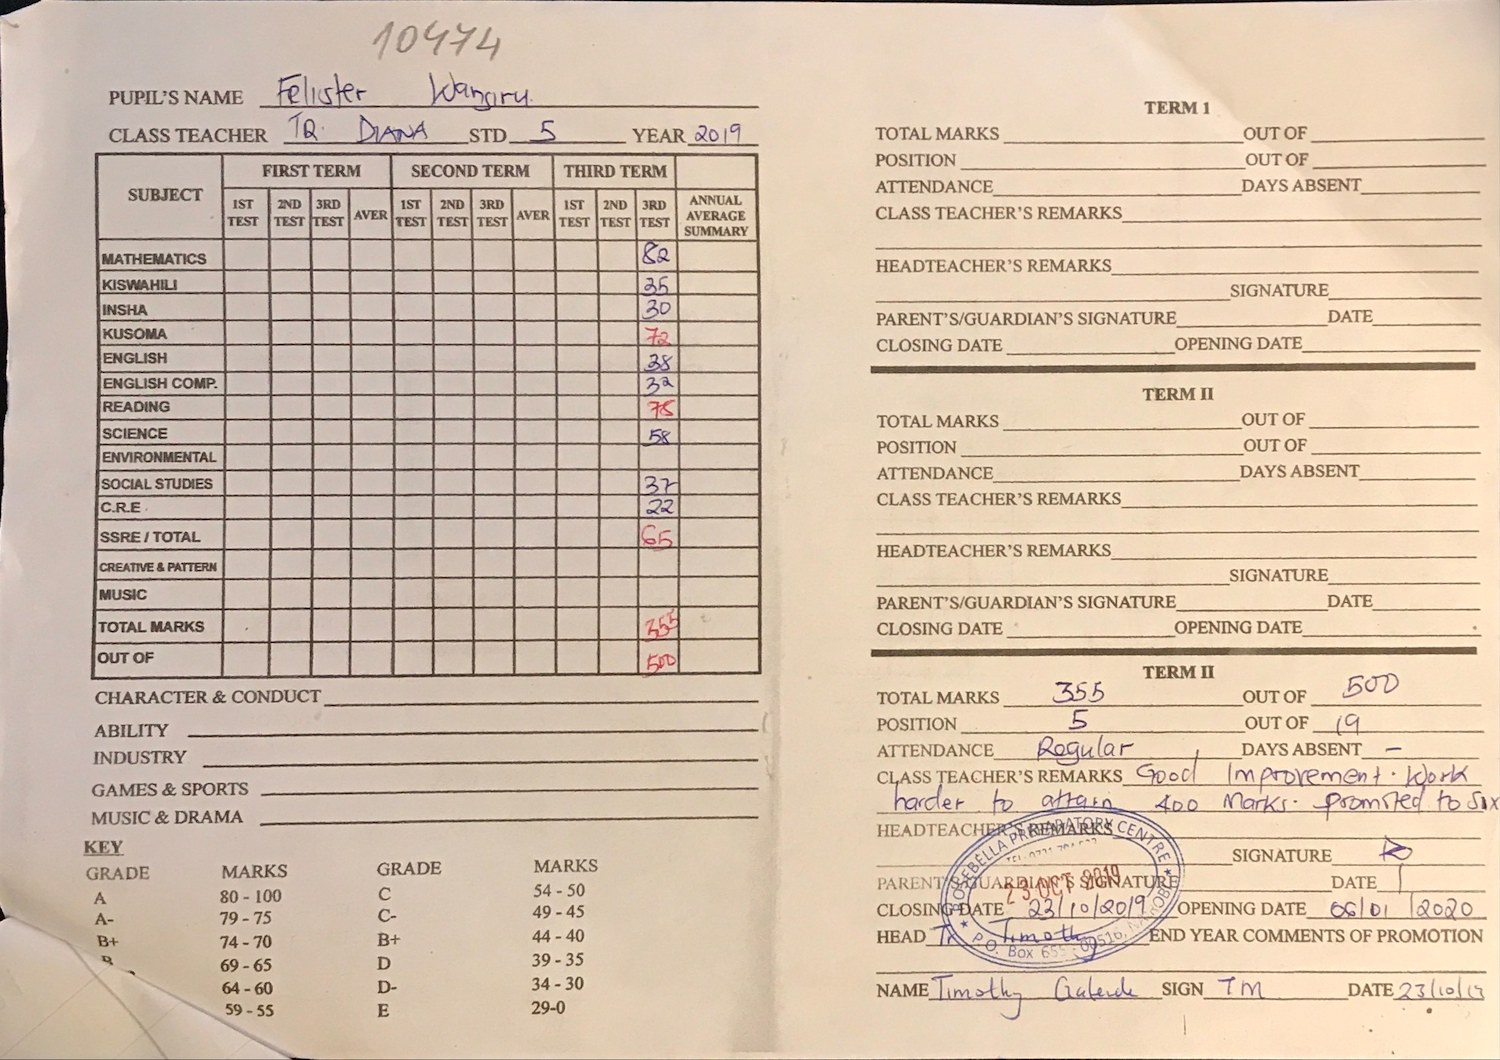 10474
PUPIL'S NAME Felister Wangiru.
CLASS TEACHER TR. DIANA STD 5 YEAR 2019
SUBJECT FIRST TERM SECOND TERM THIRD TERM
1ST TEST 2ND TEST 3RD TEST AVER 1ST TEST 2ND TEST 3RD TEST AVER 1ST TEST 2ND TEST 3RD TEST ANNUAL AVERAGE SUMMARY
MATHEMATICS 82
KISWAHILI 35
INSHA 30
KUSOMA 72
ENGLISH 38
ENGLISH COMP. 32
READING 75
SCIENCE 58
ENVIRONMENTAL
SOCIAL STUDIES 37
C.R.E 22
SSRE / TOTAL 65
CREATIVE & PATTERN
MUSIC
TOTAL MARKS 355
OUT OF 500
CHARACTER & CONDUCT
ABILITY
INDUSTRY
GAMES & SPORTS
MUSIC & DRAMA
KEY
GRADE MARKS GRADE MARKS
A 80 - 100 C 54 - 50
A- 79 - 75 C- 49 - 45
B+ 74 - 70 B+ 44 - 40
B 69 - 65 D 39 - 35
64 - 60 D- 34 - 30
59 - 55 E 29-0
TERM 1
TOTAL MARKS OUT OF
POSITION OUT OF
ATTENDANCE DAYS ABSENT
CLASS TEACHER'S REMARKS
HEADTEACHER'S REMARKS
SIGNATURE
PARENT'S/GUARDIAN'S SIGNATURE DATE
CLOSING DATE OPENING DATE
TERM II
TOTAL MARKS OUT OF
POSITION OUT OF
ATTENDANCE DAYS ABSENT
CLASS TEACHER'S REMARKS
HEADTEACHER'S REMARKS
SIGNATURE
PARENT'S/GUARDIAN'S SIGNATURE DATE
CLOSING DATE OPENING DATE
TERM II
TOTAL MARKS 355 OUT OF 500
POSITION 5 OUT OF 19
ATTENDANCE Regular DAYS ABSENT –
CLASS TEACHER'S REMARKS Good Improvement. Work
harder to attain 400 Marks. promoted to six
HEADTEACHER'S REMARKS
SIGNATURE
PARENT'S/GUARDIAN'S SIGNATURE DATE
ROSEBELLA PREPARATORY CENTRE
23 OCT 2019
P.O. Box 655 - 00516, NAIROBI
CLOSING DATE 23/10/2019 OPENING DATE 06/01/2020
HEAD Tr. Timothy END YEAR COMMENTS OF PROMOTION
NAME Timothy SIGN TM DATE 23/10/19